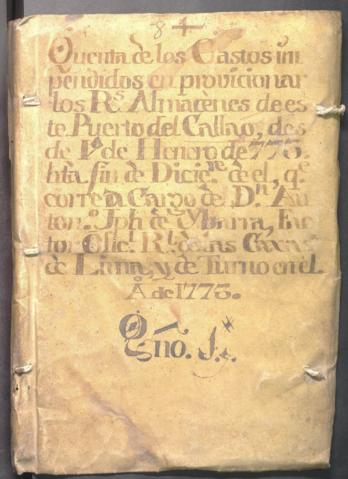 84
Quenta de los Gastos im
pendidos en provicionar
los R.s Almacènes de es
te Puerto del Callao, des
de 1.º de Henero de 1773.
hta fin de Dicie.re de el, q.e
corre a Cargo del D.n An
ton.o Jph de Ybarra, Fac
tor Ofic.l R.l de las Caxas
de Lima, y de Turno en el
A. de 1773.
Qño. J.